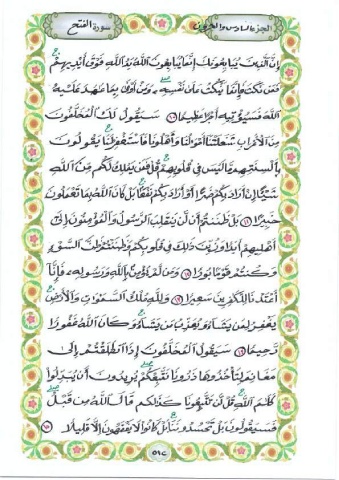 الجزء السادس والعشرون سورة الفتح
إن الذين يبايعونك إنما يبايعون الله يد الله فوق أيديهم
فمن نكث فإنما ينكث على نفسه ومن أوفى بما عاهد عليه
الله فسيؤتيه أجرا عظيما ١٠ سيقول لك المخلفون
من الأعراب شغلتنا أموالنا وأهلونا فاستغفر لنا يقولون
بألسنتهم ما ليس في قلوبهم قل فمن يملك لكم من الله
شيئا إن أراد بكم ضرا أو أراد بكم نفعا بل كان الله بما تعملون
خبيرا ١١ بل ظننتم أن لن ينقلب الرسول والمؤمنون إلى
أهليهم أبدا وزين ذلك في قلوبكم وظننتم ظن السوء
وكنتم قوما بورا ١٢ ومن لم يؤمن بالله ورسوله فإنا
أعتدنا للكافرين سعيرا ١٣ ولله ملك السموات والأرض
يغفر لمن يشاء ويعذب من يشاء وكان الله غفورا
رحيما ١٤ سيقول المخلفون إذا انطلقتم إلى
مغانم لتأخذوها ذرونا نتبعكم يريدون أن يبدلوا
كلام الله قل لن تتبعونا كذلكم قال الله من قبل
فسيقولون بل تحسدوننا بل كانوا لا يفقهون إلا قليلا ١٥
٥١٢